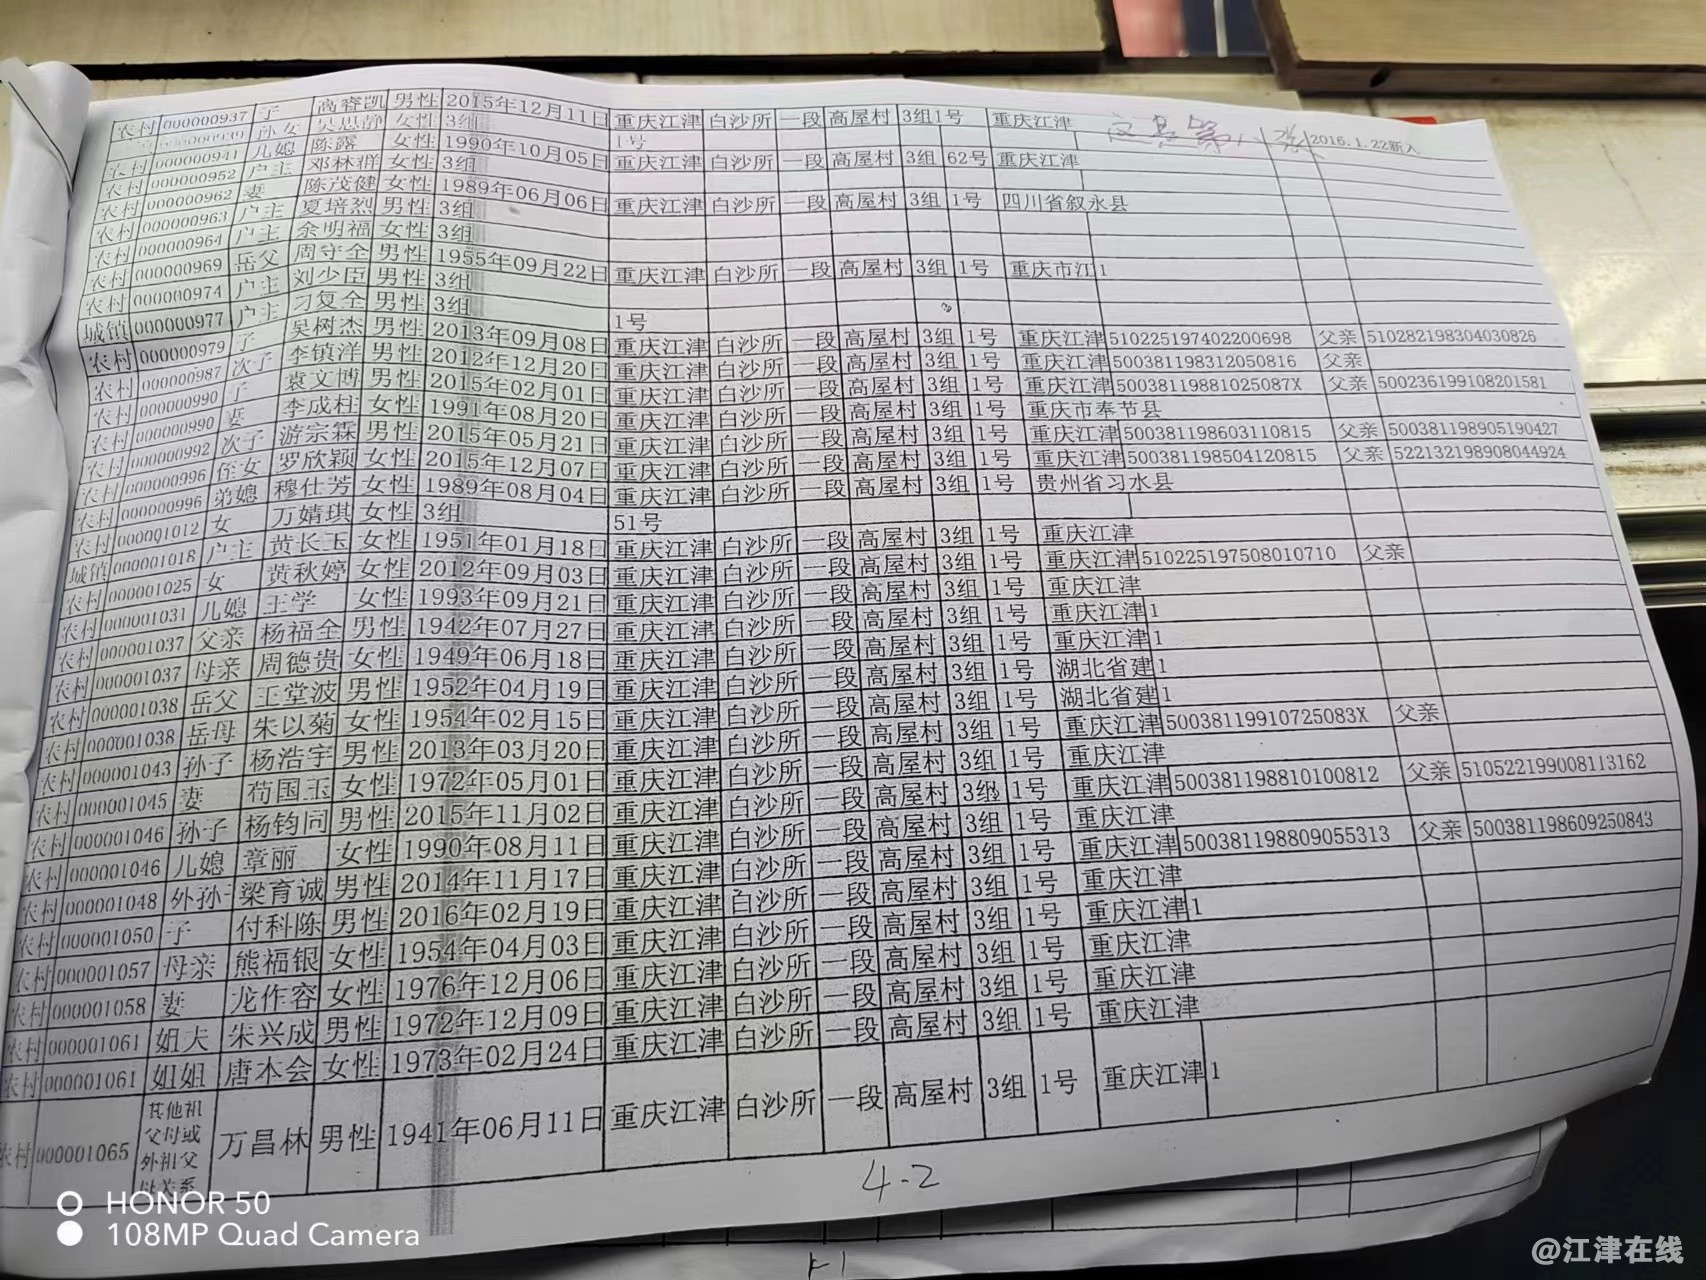 农村 000000937 子 高睿凯 男性 2015年12月11日 重庆江津 白沙所 一段 高屋村 3组 1号 重庆江津 2016.1.22新入
000000939 孙女 吴思静 女性 3组 1号
农村 000000941 儿媳 陈露 女性 1990年10月05日 重庆江津 白沙所 一段 高屋村 3组 62号 重庆江津
农村 000000952 户主 邓林群 女性 3组
农村 000000962 妻 陈茂健 女性 1989年06月06日 重庆江津 白沙所 一段 高屋村 3组 1号 四川省叙永县
农村 000000963 户主 夏培烈 男性 3组
农村 000000964 户主 余明福 女性 3组
农村 000000969 岳父 周守全 男性 1955年09月22日 重庆江津 白沙所 一段 高屋村 3组 1号 重庆市江1
农村 000000974 户主 刘少臣 男性 3组
城镇 000000977 户主 刁复全 男性 3组 1号
农村 000000979 子 吴树杰 男性 2013年09月08日 重庆江津 白沙所 一段 高屋村 3组 1号 重庆江津 510225197402200698 父亲 510282198304030826
农村 000000987 次子 李镇洋 男性 2012年12月20日 重庆江津 白沙所 一段 高屋村 3组 1号 重庆江津 500381198312050816 父亲
农村 000000990 子 袁文博 男性 2015年02月01日 重庆江津 白沙所 一段 高屋村 3组 1号 重庆江津 50038119881025087X 父亲 500236199108201581
农村 000000990 妻 李成柱 女性 1991年08月20日 重庆江津 白沙所 一段 高屋村 3组 1号 重庆市奉节县
农村 000000992 次子 游宗霖 男性 2015年05月21日 重庆江津 白沙所 一段 高屋村 3组 1号 重庆江津 500381198603110815 父亲 500381198905190427
农村 000000996 侄女 罗欣颖 女性 2015年12月07日 重庆江津 白沙所 一段 高屋村 3组 1号 重庆江津 500381198504120815 父亲 522132198908044924
农村 000000996 弟媳 穆仕芳 女性 1989年08月04日 重庆江津 白沙所 一段 高屋村 3组 1号 贵州省习水县
农村 000001012 女 万婧琪 女性 3组 51号
城镇 000001018 户主 黄长玉 女性 1951年01月18日 重庆江津 白沙所 一段 高屋村 3组 1号 重庆江津
农村 000001025 女 黄秋婷 女性 2012年09月03日 重庆江津 白沙所 一段 高屋村 3组 1号 重庆江津 510225197508010710 父亲
农村 000001031 儿媳 王学 女性 1993年09月21日 重庆江津 白沙所 一段 高屋村 3组 1号 重庆江津
农村 000001037 父亲 杨福全 男性 1942年07月27日 重庆江津 白沙所 一段 高屋村 3组 1号 重庆江津 1
农村 000001037 母亲 周德贵 女性 1949年06月18日 重庆江津 白沙所 一段 高屋村 3组 1号 重庆江津 1
农村 000001038 岳父 王堂波 男性 1952年04月19日 重庆江津 白沙所 一段 高屋村 3组 1号 湖北省建1
农村 000001038 岳母 朱以菊 女性 1954年02月15日 重庆江津 白沙所 一段 高屋村 3组 1号 湖北省建1
农村 000001043 孙子 杨浩宇 男性 2013年03月20日 重庆江津 白沙所 一段 高屋村 3组 1号 重庆江津 50038119910725083X 父亲
农村 000001045 妻 苟国玉 女性 1972年05月01日 重庆江津 白沙所 一段 高屋村 3组 1号 重庆江津
农村 000001046 孙子 杨钧同 男性 2015年11月02日 重庆江津 白沙所 一段 高屋村 3组 1号 重庆江津 500381198810100812 父亲 510522199008113162
农村 000001046 儿媳 章丽 女性 1990年08月11日 重庆江津 白沙所 一段 高屋村 3组 1号 重庆江津
农村 000001048 外孙子 梁育诚 男性 2014年11月17日 重庆江津 白沙所 一段 高屋村 3组 1号 重庆江津 500381198809055313 父亲 500381198609250843
农村 000001050 子 付科陈 男性 2016年02月19日 重庆江津 白沙所 一段 高屋村 3组 1号 重庆江津
农村 000001057 母亲 熊福银 女性 1954年04月03日 重庆江津 白沙所 一段 高屋村 3组 1号 重庆江津 1
农村 000001058 妻 龙作容 女性 1976年12月06日 重庆江津 白沙所 一段 高屋村 3组 1号 重庆江津
农村 000001061 姐夫 朱兴成 男性 1972年12月09日 重庆江津 白沙所 一段 高屋村 3组 1号 重庆江津
农村 000001061 姐姐 唐本会 女性 1973年02月24日 重庆江津 白沙所 一段 高屋村 3组 1号 重庆江津
农村 000001065 其他祖父母或外祖父 万昌林 男性 1941年06月11日 重庆江津 白沙所 一段 高屋村 3组 1号 重庆江津 1
4-2
HONOR 50
108MP Quad Camera
@江津在线